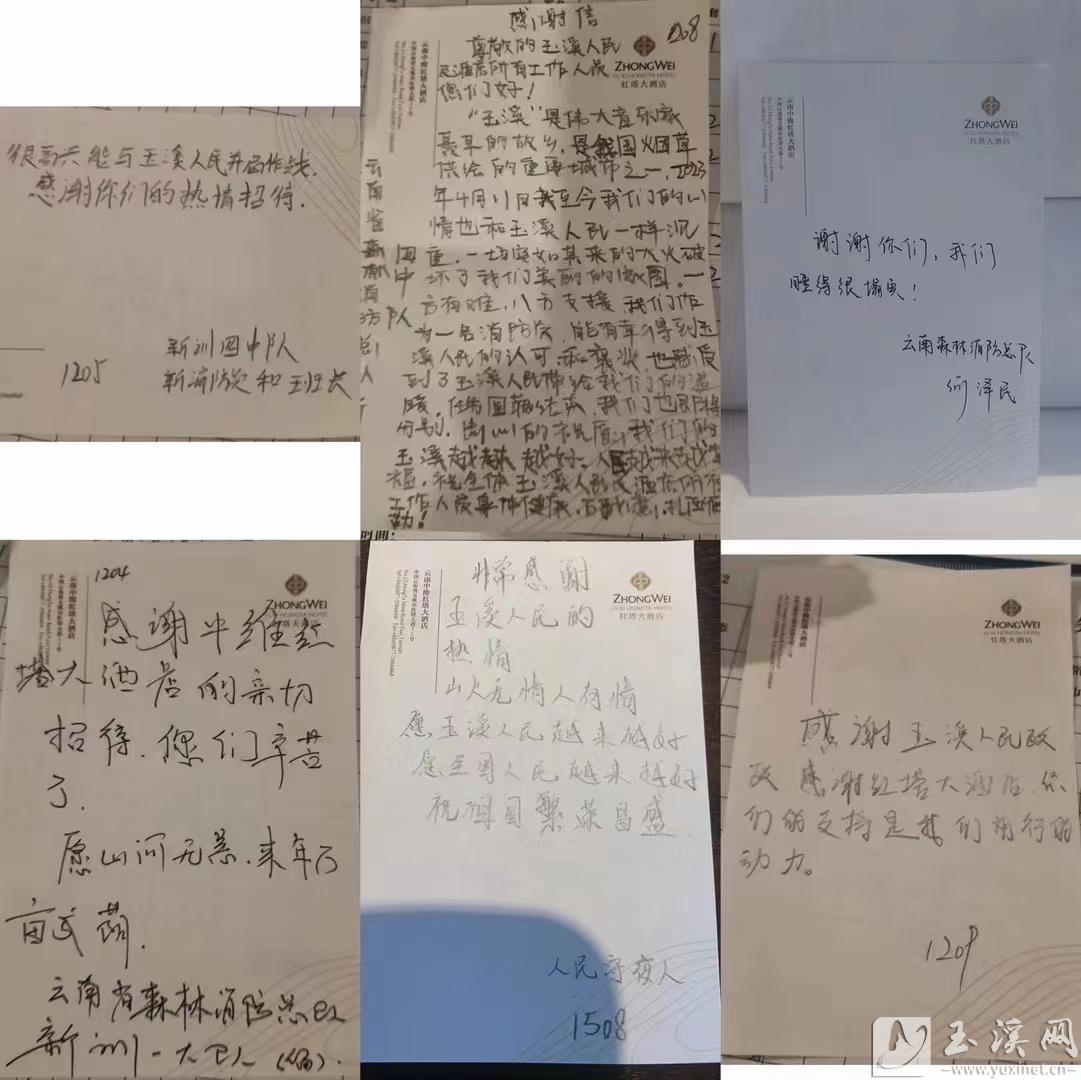 很高兴能与玉溪人民并肩作战,
感谢你们的热情招待.
新训四中队
新消防员和班长
1205
感谢信
1208
尊敬的玉溪人民
及酒店所有工作人员
您们好!
ZHONGWEI
YUXI HONGTA HOTEL
红塔大酒店
云南中维红塔大酒店
"玉溪"是伟大音乐家
聂耳的故乡,是我国烟草
供给的重要城市之一,2023
年4月11日我至今我们的心
情也和玉溪人民一样沉
重,一场突如其来的大火破
坏了我们美丽的家园.一
方有难,八方支援,我们作
为一名消防员,能有幸得到玉
溪人民的认可和褒奖,也感受
到了玉溪人民带给我们的温
暖,任务圆满结束,我们也即将
分别.
玉溪越来越好.人民越来越幸
福.祝全体玉溪人民及酒店所有
工作人员身体健康,
云南省森林消防总队
ZHONGWEI
YUXI HONGTA HOTEL
红塔大酒店
云南中维红塔大酒店
谢谢你们,我们
睡得很塌实!
云南森林消防总队
何泽民
1204
ZHONGWEI
YUXI HONGTA HOTEL
红塔大酒店
云南中维红塔大酒店
感谢中维红
塔大酒店的亲切
招待.您们辛苦
了.
愿山河无恙.来年万
亩
云南省森林消防总队
新训一大
非常感谢
玉溪人民的
热情
山火无情人有情
愿玉溪人民越来越好
愿全国人民越来越好
祝祖国繁荣昌盛
ZHONGWEI
YUXI HONGTA HOTEL
红塔大酒店
云南中维红塔大酒店
人民守夜人
1508
ZHONGWEI
YUXI HONGTA HOTEL
红塔大酒店
云南中维红塔大酒店
感谢玉溪人民政
感谢红塔大酒店.你
们的支持是我们前行的
动力。
1209
玉溪网
-www.yuxinet.cn-